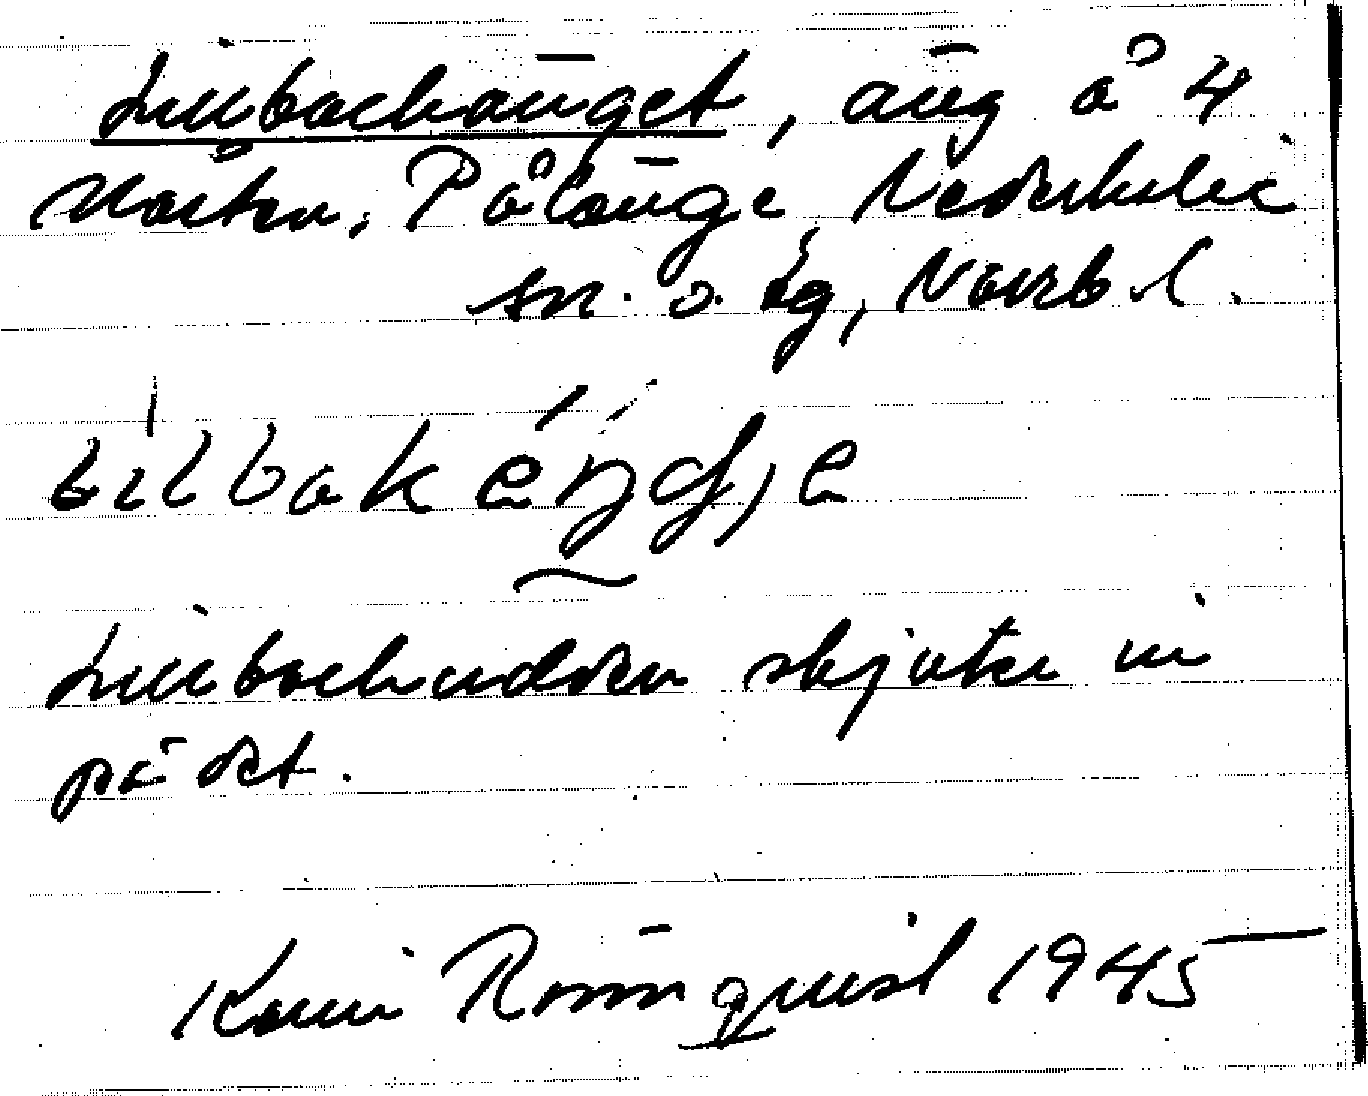 Lillbackänget, äng å 4
Mårten, Pålänge, Nederkalix
sn. o. lg, Norrb. l.
lilbakéŋdje
Lillbackudden skjuter in
på det.
Karin Rönnquist 1945